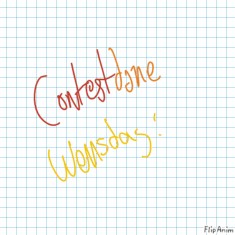 Contest done
Wensday:
FlipAnim